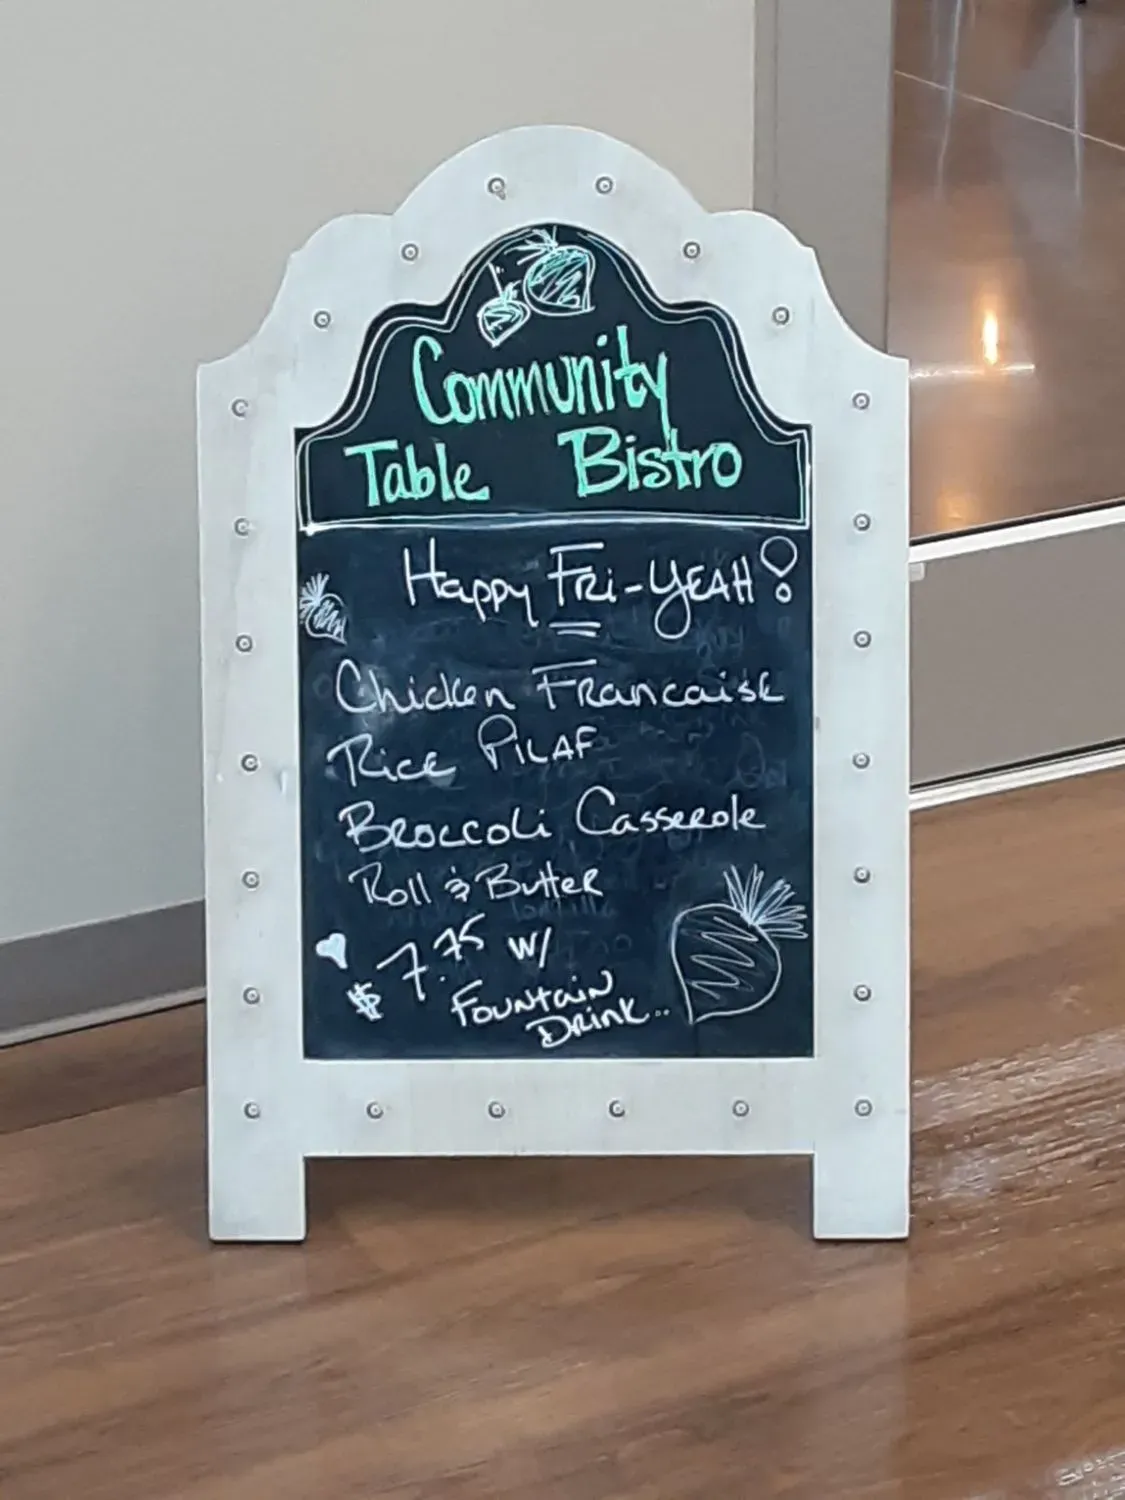 Community
Table Bistro
Happy Fri-YEAH!
Chicken Francaise
Rice Pilaf
Broccoli Casserole
Roll & Butter
$7.75 w/
Fountain
Drink..